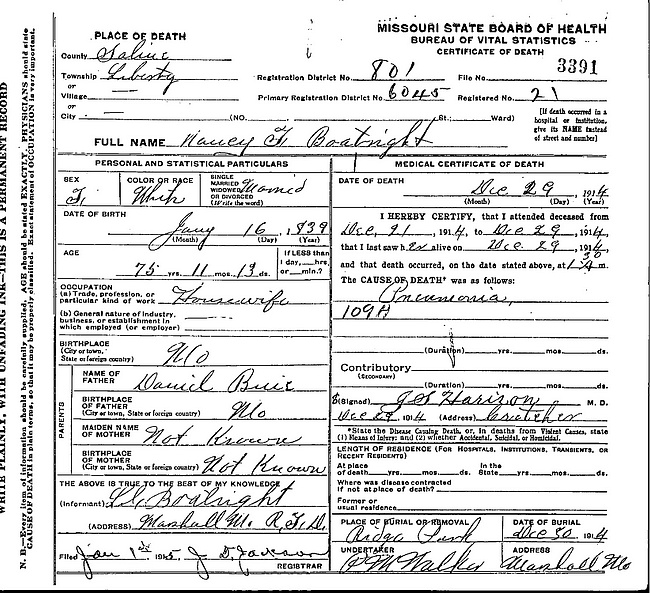 MISSOURI STATE BOARD OF HEALTH
BUREAU OF VITAL STATISTICS
CERTIFICATE OF DEATH
PLACE OF DEATH
County Saline
Township Liberty
or
Village
or
City
Registration District No. 801 File No. 3391
Primary Registration District No. 6045 Registered No. 21
(NO. St.; Ward)
[If death occurred in a hospital or institution, give its NAME instead of street and number]
FULL NAME Nancy F. Boatright
PERSONAL AND STATISTICAL PARTICULARS
SEX F.
COLOR OR RACE White
SINGLE MARRIED WIDOWED OR DIVORCED (Write the word) Married
DATE OF BIRTH Jany 16, 1839
(Month) (Day) (Year)
AGE 75 yrs. 11 mos. 13 ds.
If LESS than 1 day, hrs. or min.?
OCCUPATION
(a) Trade, profession, or particular kind of work Housewife
(b) General nature of industry, business, or establishment in which employed (or employer)
BIRTHPLACE
(City or town, State or foreign country) Mo
PARENTS
NAME OF FATHER Daniel
BIRTHPLACE OF FATHER
(City or town, State or foreign country) Mo
MAIDEN NAME OF MOTHER Not Known
BIRTHPLACE OF MOTHER
(City or town, State or foreign country) Not Known
THE ABOVE IS TRUE TO THE BEST OF MY KNOWLEDGE
(Informant) Boatright
(ADDRESS) Marshall Mo. R.F.D.
Filed Jan 1st 1915 J D Jackson
REGISTRAR
MEDICAL CERTIFICATE OF DEATH
DATE OF DEATH Dec 29, 1914
(Month) (Day) (Year)
I HEREBY CERTIFY, that I attended deceased from
Dec, 21, 1914, to Dec 29, 1914,
that I last saw her alive on Dec 29, 1914,
and that death occurred, on the date stated above, at m.
The CAUSE OF DEATH* was as follows:
Pneumonia,
109A
(Duration) yrs. mos. ds.
Contributory
(SECONDARY)
(Duration) yrs. mos. ds.
(Signed) Harison M. D.
Dec 29 1914 (Address) Crutcher
*State the Disease Causing Death, or, in deaths from Violent Causes, state (1) Means of Injury; and (2) whether Accidental, Suicidal, or Homicidal.
LENGTH OF RESIDENCE (FOR HOSPITALS, INSTITUTIONS, TRANSIENTS, OR RECENT RESIDENTS)
At place of death yrs. mos. ds. In the State yrs. mos. ds.
Where was disease contracted if not at place of death?
Former or usual residence
PLACE OF BURIAL OR REMOVAL Ridge Park
DATE OF BURIAL Dec 30 1914
UNDERTAKER P M Walker
ADDRESS Marshall Mo
WRITE PLAINLY, WITH UNFADING INK—THIS IS A PERMANENT RECORD
N. B.—Every item of information should be carefully supplied. AGE should be stated EXACTLY. PHYSICIANS should state
CAUSE OF DEATH in plain terms, so that it may be properly classified. Exact statement of OCCUPATION is very important.